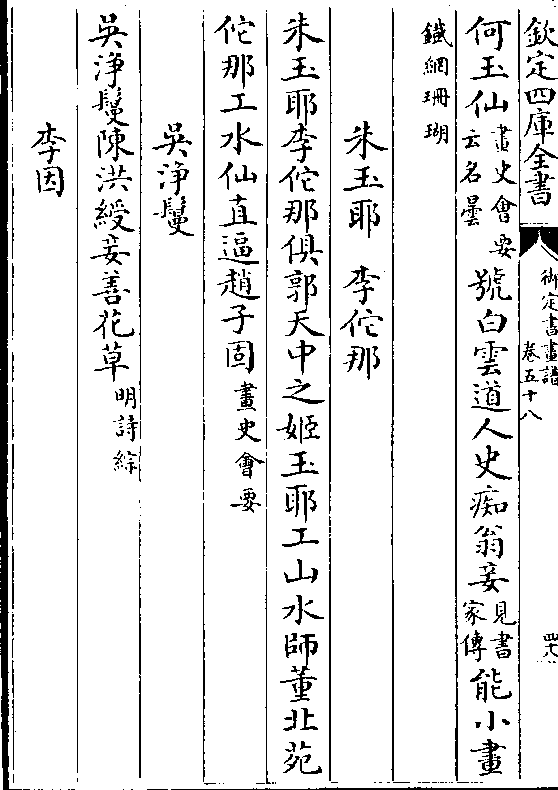 欽定四庫全書
御定書畫譜
卷五十八
何玉仙畫史會要云名曇號白雲道人史痴翁妾見書家傳能小畫
鐵網珊瑚
朱玉耶 李佗那
朱玉耶李佗那俱郭天中之姬玉耶工山水師董北苑
佗那工水仙直逼趙子固畫史會要
吳淨鬘
吳淨鬘陳洪綬妾善花草明詩綜
李因